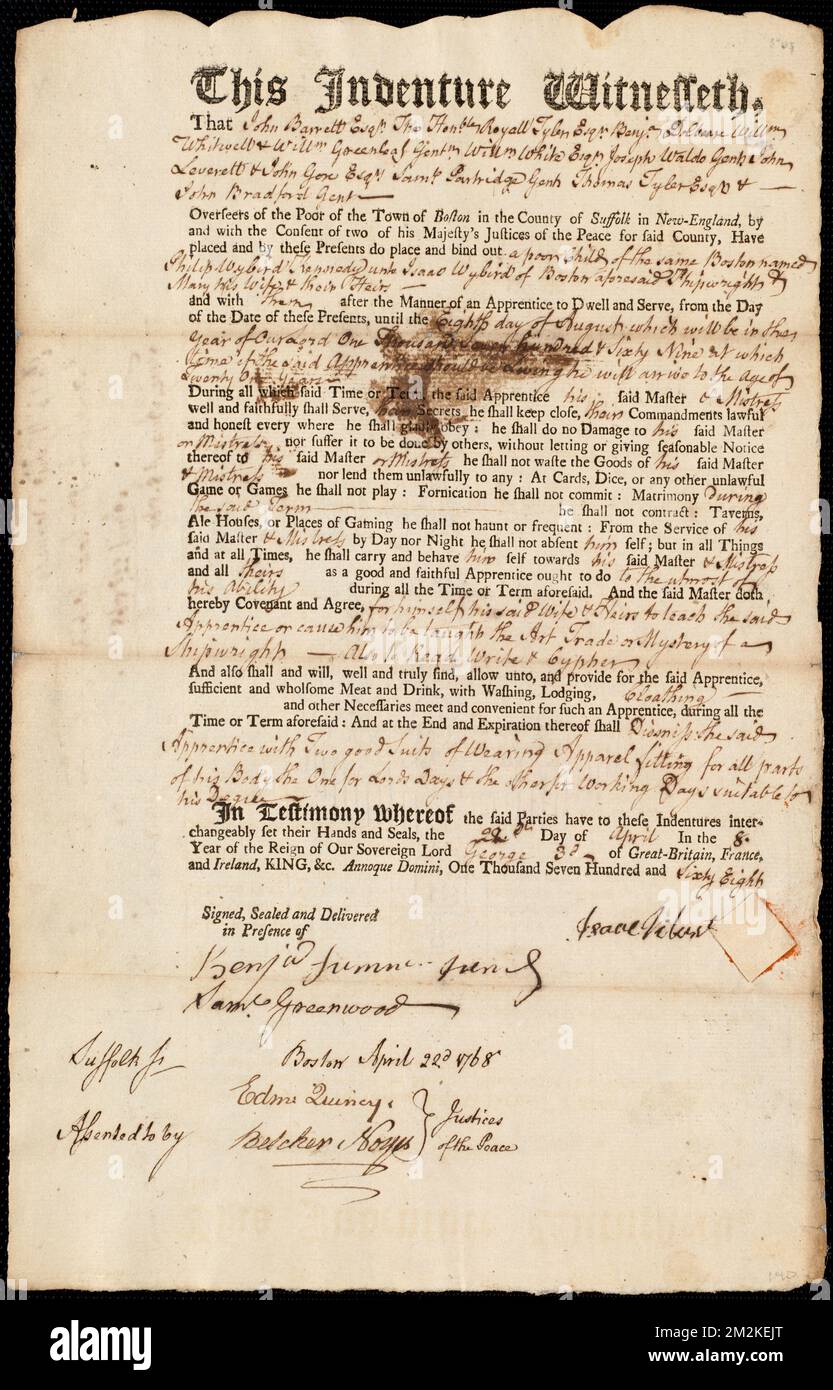 This Indenture Witnesseth,
That John Barrett Esqr. The Honble. Royall Tyler Esqr. Benjn. Dolbeare Willm
Whitwell & Willm Greenleaf Gentn Willm White Esqr Joseph Waldo Gent John
Leverett & John Gore Esqrs Saml Partridge Gent Thomas Tyler Esqr &
John Bradford Gent
Overseers of the Poor of the Town of Boston in the County of Suffolk in New-England, by
and with the Consent of two of his Majesty's Justices of the Peace for said County, Have
placed and by these Presents do place and bind out a poor Child of the same Boston named
Philip Wybird Kennedy unto Isaac Wybird of Boston aforesaid Shipwright &
Mary his Wife & their Heirs
and with them after the Manner of an Apprentice to Dwell and Serve, from the Day
of the Date of these Presents, until the Eighth day of August which will be in the
Year of Our Lord One Thousand Seven hundred & Sixty Nine at which
time if the said Apprentice should be Living he will arrive to the Age of
Twenty One Years
During all which said Time or Term the said Apprentice his said Master & Mistress
well and faithfully shall Serve, their Secrets he shall keep close, their Commandments lawful
and honest every where he shall gladly obey: he shall do no Damage to his said Master
or Mistress nor suffer it to be done by others, without letting or giving seasonable Notice
thereof to his said Master or Mistress he shall not waste the Goods of his said Master
& Mistress nor lend them unlawfully to any: At Cards, Dice, or any other unlawful
Game or Games he shall not play: Fornication he shall not commit: Matrimony during
the said Term he shall not contract: Taverns,
Ale Houses, or Places of Gaming he shall not haunt or frequent: From the Service of his
said Master & Mistress by Day nor Night he shall not absent him self; but in all Things
and at all Times, he shall carry and behave him self towards his said Master & Mistress
and all theirs as a good and faithful Apprentice ought to do to the utmost of
his Ability during all the Time or Term aforesaid. And the said Master doth
hereby Covenant and Agree, for himself, his said Wife & Heirs to teach the said
Apprentice or cause him to be taught the Art Trade or Mystery of a
Shipwright — Also to Read Write & Cypher
And also shall and will, well and truly find, allow unto, and provide for the said Apprentice,
sufficient and wholsome Meat and Drink, with Washing, Lodging, Cloathing
and other Necessaries meet and convenient for such an Apprentice, during all the
Time or Term aforesaid: And at the End and Expiration thereof shall Dismiss the said
Apprentice with Two good Suits of Wearing Apparel fitting for all parts
of his Body the One for Lords Days & the other for Working Days suitable to
his Degree
In Testimony whereof the said Parties have to these Indentures inter-
changeably set their Hands and Seals, the 22d. Day of April In the 8.
Year of the Reign of Our Sovereign Lord George 3d of Great-Britain, France,
and Ireland, KING, &c. Annoque Domini, One Thousand Seven Hundred and Sixty Eight
Signed, Sealed and Delivered
in Presence of
Isaac Vibert
Benja Sumner Junr
Saml Greenwood
Suffolk Ss Boston April 22d 1768
Assented to by
Edm Quincy
Belcher Noyes
Justices
of the Peace
alamy
Image ID: 2M2KEJT
www.alamy.com